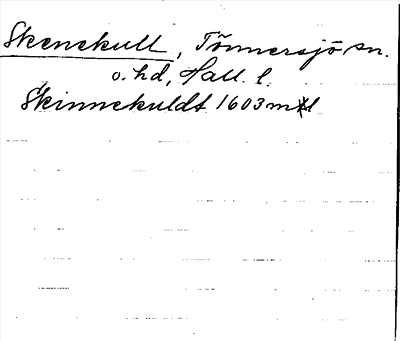 Skenekull, Tönnersjö sn.
o. hd, Hall. l.
Skinnekuldt 1603